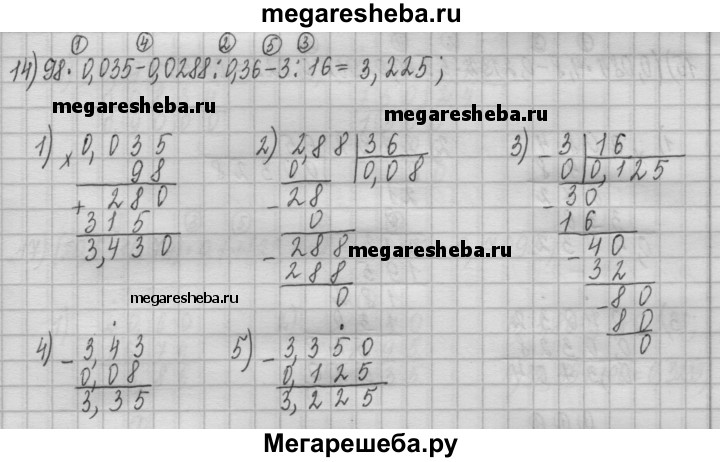 megaresheba.ru
① ④ ② ⑤ ③
14) 98 · 0,035 - 0,0288 : 0,36 - 3 : 16 = 3,225;
megaresheba.ru
1) × 0,035
98
+ 280
315
3,430
2) 2,88 | 36
0 | 0,08
- 28
0
- 288
288
0
3) - 3 | 16
0 | 0,125
- 30
16
- 40
32
- 80
80
0
megaresheba.ru
megaresheba.ru
4) - 3,43
0,08
3,35
5) - 3,350
0,125
3,225
Мегарешеба.ру